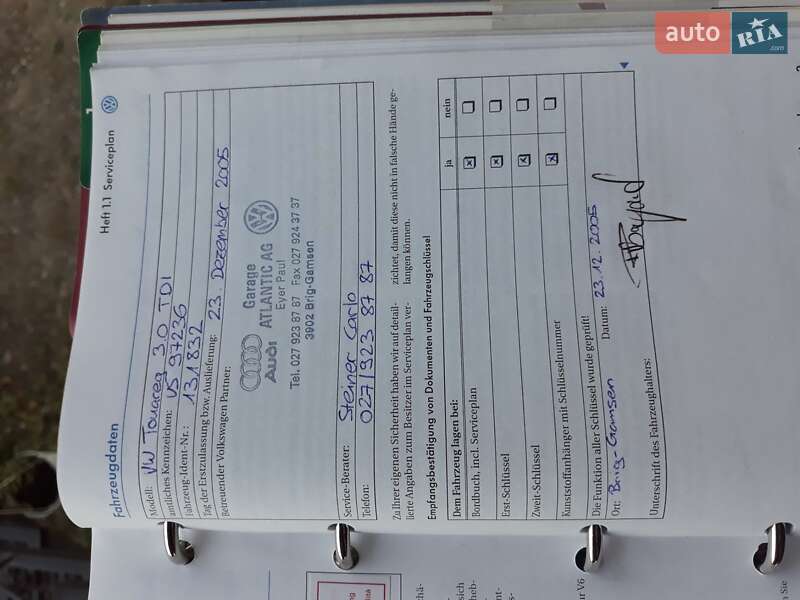 auto RIA .com
Heft 1.1 Serviceplan
Fahrzeugdaten
Modell: VW Touareg 3.0 TDI
amtliches Kennzeichen: VS 97236
Fahrzeug-Ident-Nr.: 131832
Tag der Erstzulassung bzw. Auslieferung: 23. Dezember 2005
Betreuender Volkswagen Partner:
Garage
Audi ATLANTIC AG
Eyer Paul
Tel. 027 923 87 87 Fax 027 924 37 37
3902 Brig-Gamsen
Service-Berater: Steiner Carlo
Telefon: 027/923 87 87
Zu Ihrer eigenen Sicherheit haben wir auf detail-
lierte Angaben zum Besitzer im Serviceplan ver-
zichtet, damit diese nicht in falsche Hände ge-
langen können.
Empfangsbestätigung von Dokumenten und Fahrzeugschlüssel
Dem Fahrzeug lagen bei: ja nein
Bordbuch, incl. Serviceplan
Erst-Schlüssel
Zweit-Schlüssel
Kunststoffanhänger mit Schlüsselnummer
Die Funktion aller Schlüssel wurde geprüft!
Ort: Brig-Gamsen Datum: 23.12.2005
Unterschrift des Fahrzeughalters: